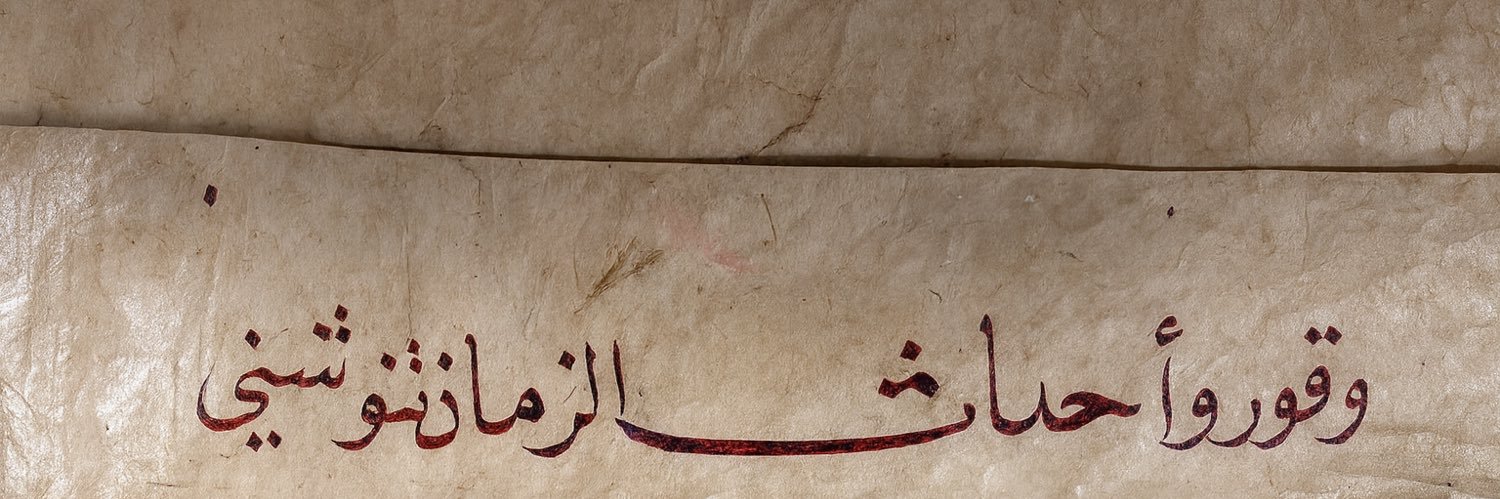 وقور وأحداث الزمان تنوشني